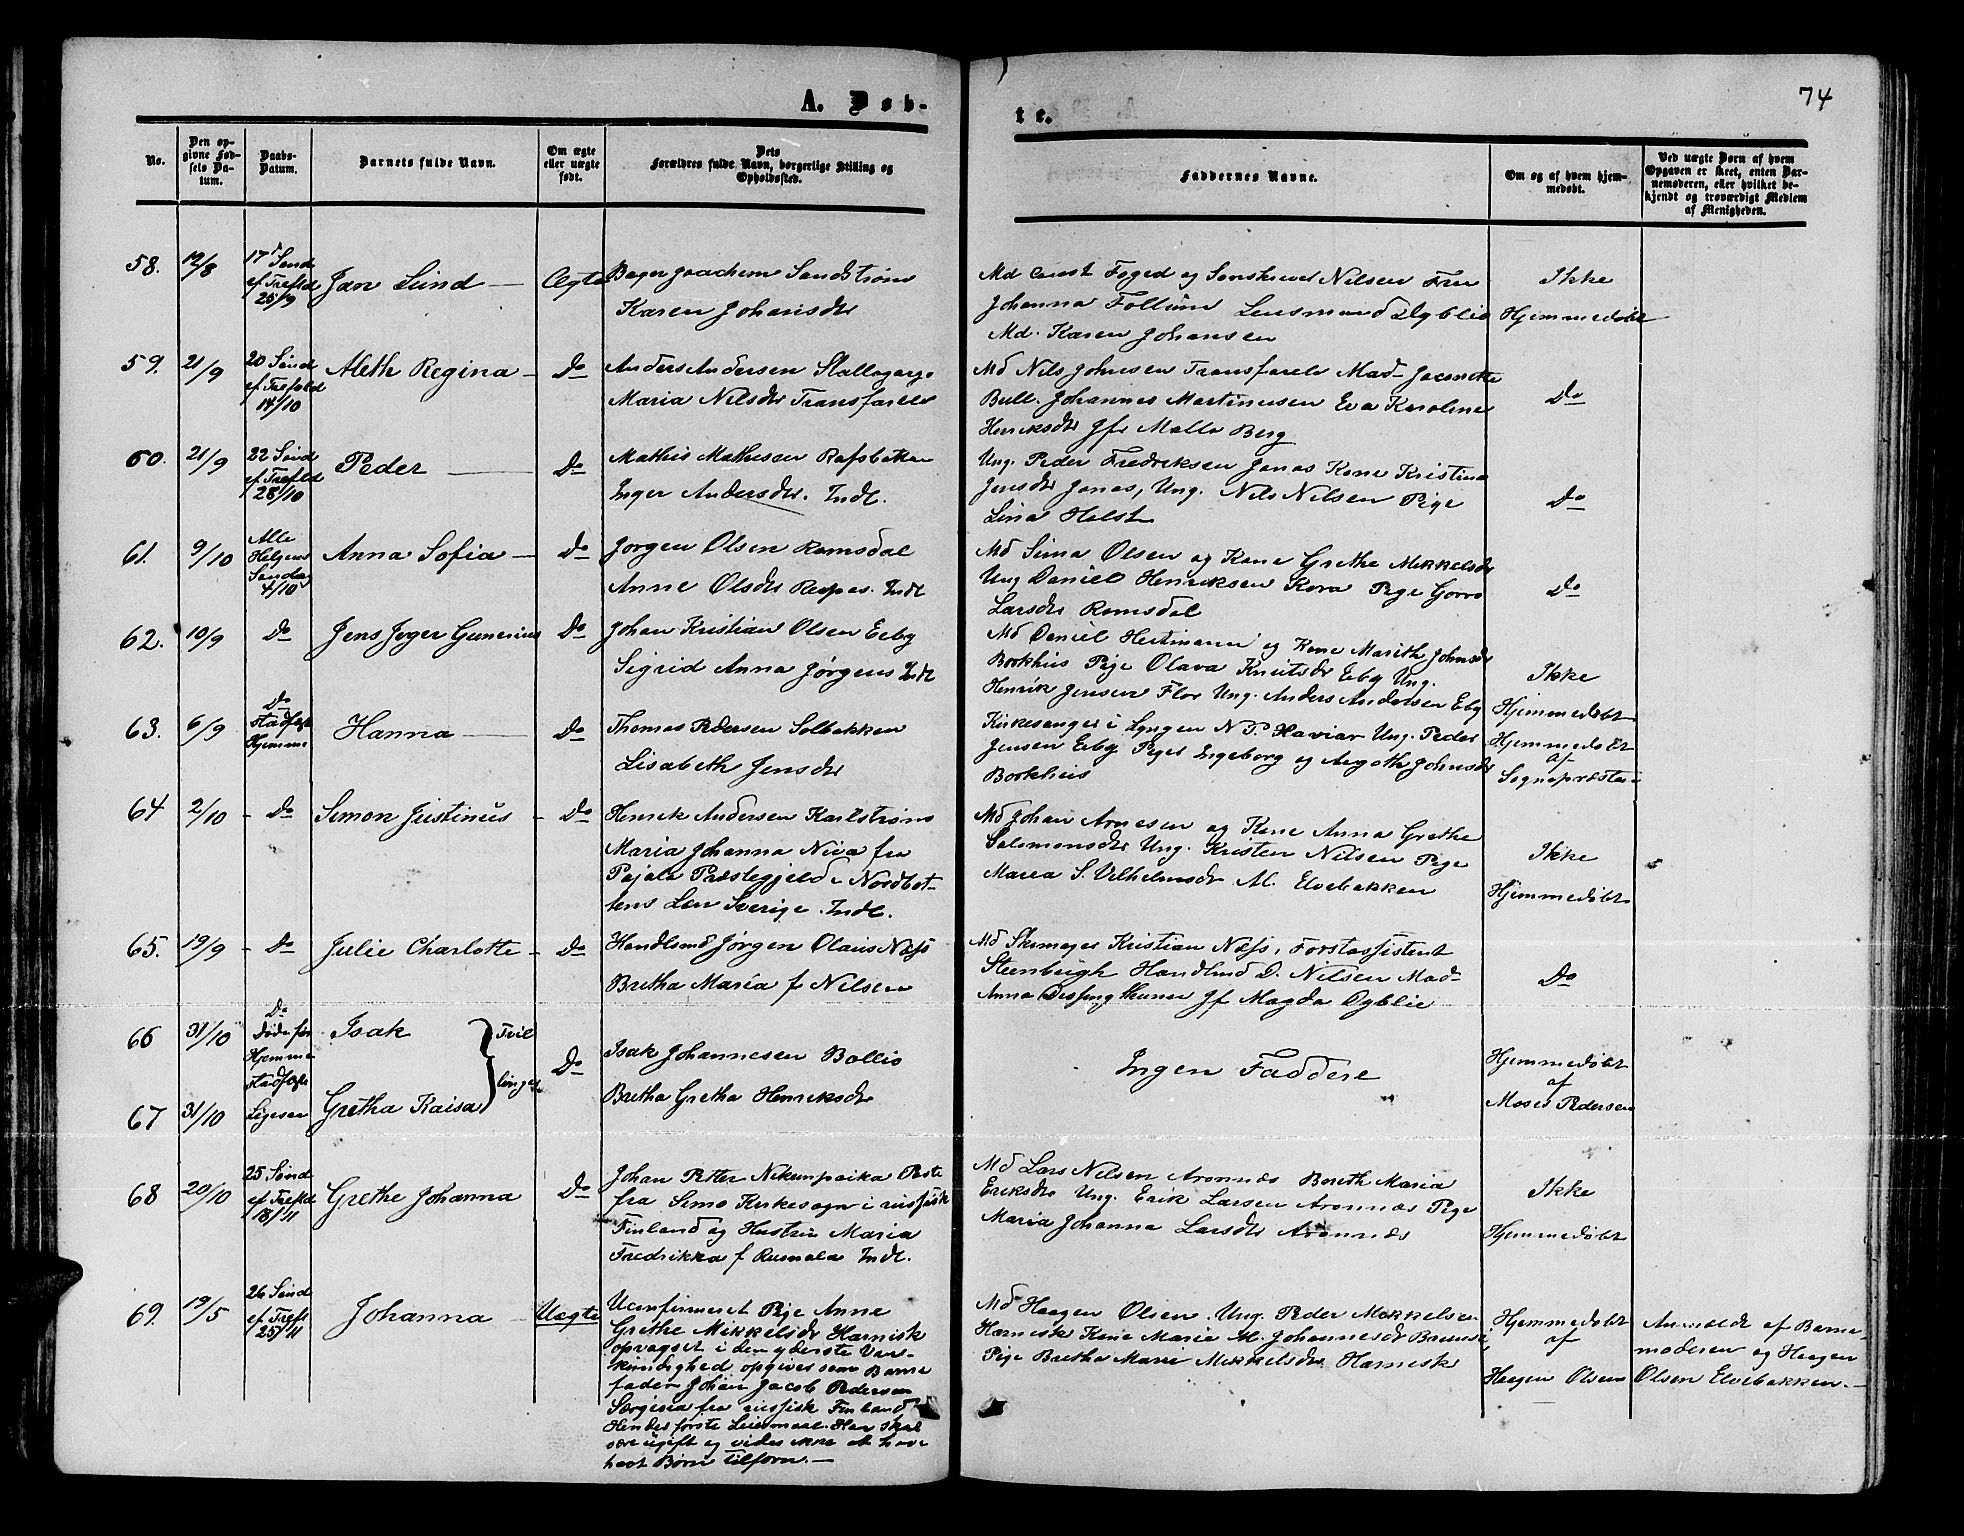 74
A. Døb-
te.
No.
Den op-
givne Fød-
sels Da-
tum.
Daabs-
Datum.
Barnets fulde Navn.
Om ægte
eller uægte
født.
Dets
Forældres fulde Navn, borgerlige Stilling og
Opholdssted.
Faddernes Navne.
Om og af hvem hjem-
medøbt.
Ved uægte Børn af hvem
Opgaven er skeet, enten Bar-
nemoderen, eller hvilket be-
kjendt og troværdigt Medlem
af Menigheden.
58. 12/8
17 Sønd
ef. Trefld
25/9
Jan Lund — Ægte
Bager Joachim Sandstrøm
Karen Johansdr
Md Const Foged og Nilsen Fru
Johanna Follum Lensmand Dyblie
Md. Karen Johansen
Ikke
Hjemmedøbt
59. 21/9
20 Sønd
ef. Trefold
14/10
Aleth Regina — Do
Anders Andersen
Maria Nilsdr Transfarelv
Md Nils Johnsen Transfarelv Mad
Bull. Johannes Martinussen Eva Karoline
Henriksdr Jfr Malla Berg
Do
60. 21/9
22 Sønd
ef. Trefld
28/10
Peder — Do
Mathis Mathisen Rafsbotten
Inger Andersdr. Indl.
Ung. Peder Fredriksen Jonas Kone Kristina
Jensdr Jonas, Ung. Nils Nilsen Pige
Lina Holst
Do
61. 9/10
Alle
Helgens
Søndag
4/10
Anna Sofia — Do
Jørgen Olsen Romsdal
Anne Olsdr Indl
Md Sima Olsen og Kone Grethe Mikkelsdr
Ung Daniel Henriksen Kora Pige
Larsdr Romsdal
Do
62. 10/9 Do
Jens Gunerius Do
Johan Kristian Olsen Eiby
Sigrid Anna Jørgens Indl
Md Daniel og Kone Marith Johnsdr
Borkhus Pige Olava Knutsdr Eiby Ung.
Henrik Jensen Flor Ung. Anders Andersen Eiby
Ikke
Hjemmedøbt
63. 6/9
Do
Stadfæst
Hjemme
Hanna — Do
Thomas Pedersen Solbakken
Lisabeth Jensdr
Kirkesanger i Lyngen N. P. Haviar Ung. Peder
Jensen Eiby Piger Ingeborg og Johnsdr
Borkhus
Hjemmedøbt
af
Sognepræsten
64 2/10 - Do
Simon Justinus - Do
Henrik Andersen Karlstrøm
Maria Johanna Niva fra
Pajala Præstegjeld - Nordbot-
tens Len Sverige. Indl.
Md Johan Arnesen og Kone Anna Grethe
Salomonsdr Ung. Kristen Nilsen Pige
Maria S. Vilhelmsdr Al. Elvebakken
Ikke
Hjemmedøbt
65. 19/9 - Do
Julie Charlotte - Do
Handlsmd Jørgen Olaus Næss
Bretha Maria f Nilsen
Md Skomager Kristian Næss, Forstassistent
Steenbuigh Handlsmd D. Nilsen Mad-
Anna Jf Magda Dyblie
Do
66 31/10
Do
Døde før
Hjemme
stadfæst
Isak } Tvil
67 31/10
Ligesaa
Gretha Kaisa linger
Do
Isak Johannesen Bollio
Bretha Gretha Henriksdr
Ingen Faddere
Hjemmedøbt
af
Moses Pedersen
68 20/10
25 Sønd
ef. Trefld
18/11
Grethe Johanna Do
Johan Petter Nikunpaika
fra Simo Kirkesogn i russisk
Finland og Hustru Maria
Fredrikka f Rusmala Indl.
Md Lars Nilsen Aronnæs Bereth Maria
Eriksdr Ung. Erik Larsen Aronnæs Pige
Maria Johanna Larsdr Aronnæs
Ikke
Hjemmedøbt
69. 19/5
26 Sønd
ef. Trefl
25/11
Johanna — Uægte
Uconfirmeret Pige Anne
Grethe Mikkelsdr Harnisk
opvogset i den yderste Van-
kundighed opgiver som Barne
fader Johan Jacob Pedersen
fra russisk Finland
Hendes første Leiermaal. Han skal
være ugift og vides ikke at have
havt Børn tilforn. —
Md Haagen Olsen. Ung. Peder Mikkelsen
Harnisk Kone Marie M. Johannesdr
Pige Bretha Marie Mikkelsdr Harnisk
Hjemmedøbt
af
Haagen Olsen
Anmeldt af Barne-
moderen og Haagen
Olsen Elvebakken. —